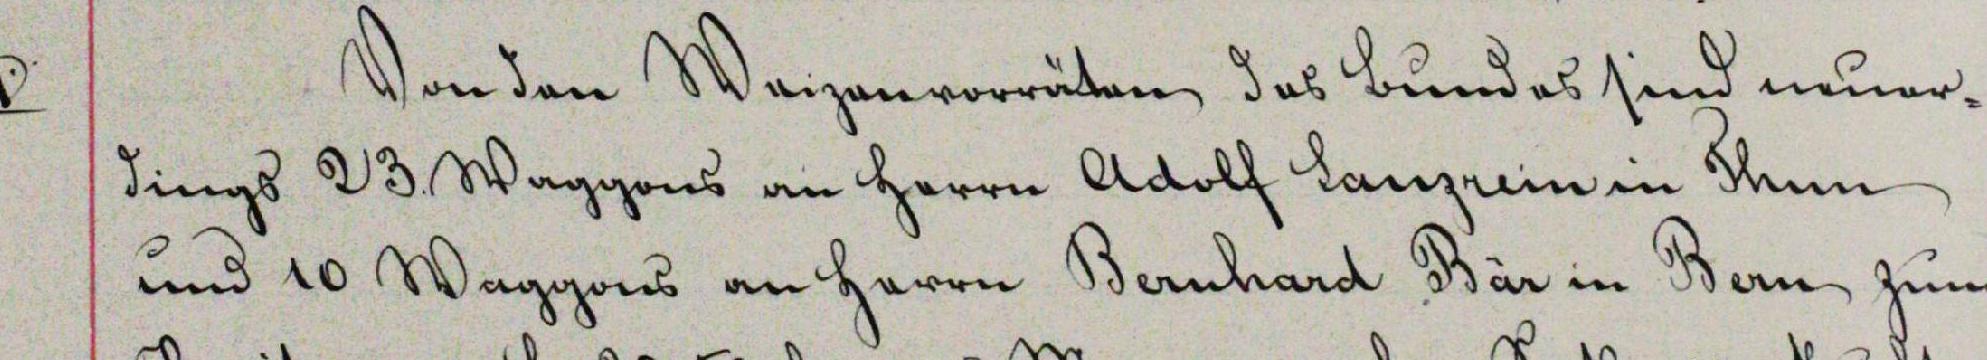 Von den Weizenvorräten des Bundes sind neuer-
dings 23. Waggons an Herrn Adolf Lanzrein in Thun
und 10 Waggons an Herrn Bernhard Bär in Bern zum